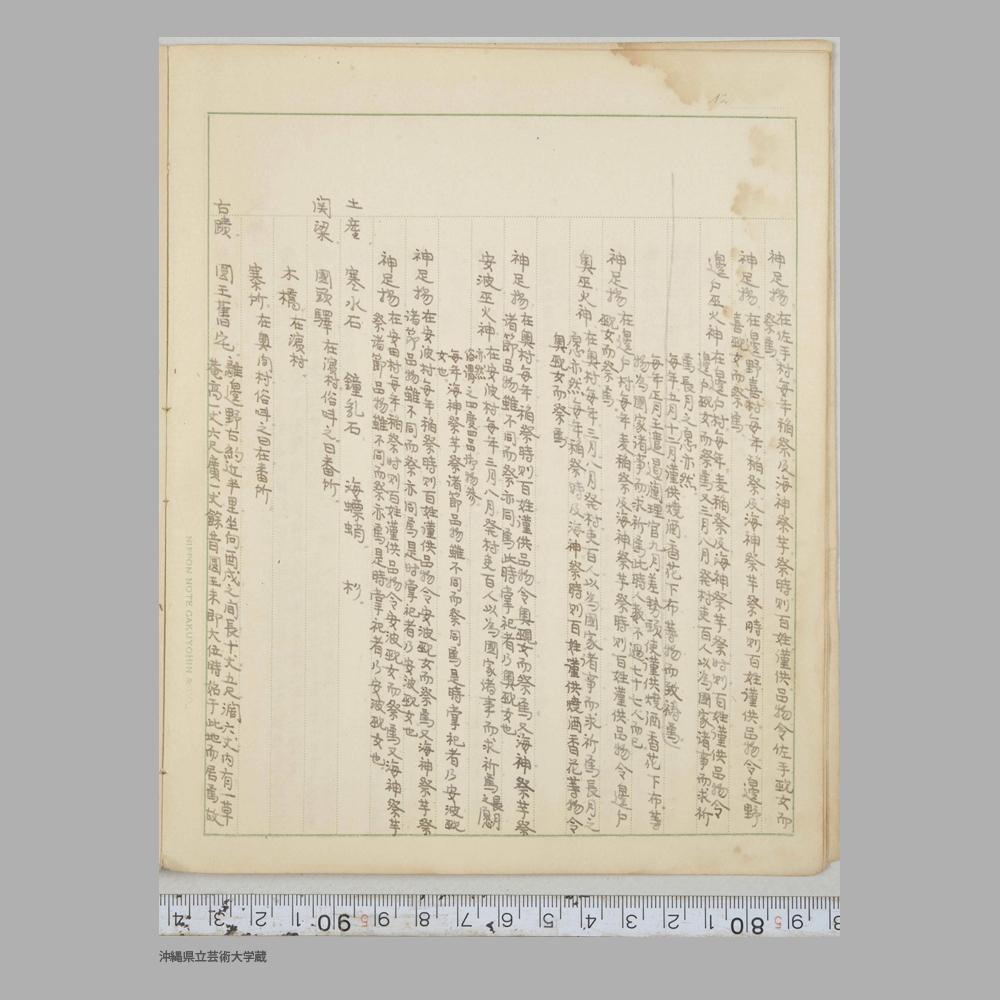 12
神足揚 在佐手村毎年稲祭及海神祭芋祭時則百姓謹供品物令佐手巫女而
祭焉
神足揚 在邊野喜村毎年稲祭及海神祭芋祭時則百姓謹供品物令邊野
喜巫女而祭焉
邊戸巫火神 在邊戸村毎年麦稲祭及海神祭芋祭時則百姓謹供品物令
邊戸巫女而祭焉又三月八月祭村吏百人以為國家諸事而求祈
焉長月之愿亦然
毎年五月十二月謹供燒酒香花下布等物而致祷焉
毎年正月王遣
物為國家諸事而求祈焉此時人数不過七十七人而已
神足揚 在邊戸村毎年麦稲祭及海神祭芋祭時則百姓謹供品物令邊戸
巫女而祭焉
奥巫火神 在奥村毎年三月八月祭村吏百人以為國家諸事而求祈焉長月之
愿亦然毎年稲祭時及海神祭時則百姓謹供燒酒香花等物令
奥巫女而祭焉
神足揚 在奥村毎年稲祭時則百姓謹供品物令奥巫女而祭焉又海神祭芋祭
諸節品物雖不同而祭亦同焉此時掌祀者乃奥巫女也
安波巫火神 在安波村毎年三月八月祭村吏百人以為國家諸事而求祈焉長月之愿
亦然
俗謂之四度四品御物参
毎年海神祭芋祭諸節品物雖不同而祭同焉是時掌祀者乃安波巫
女也
神足揚 在安波村毎年稲祭時則百姓謹供品物令安波巫女而祭焉又海神祭芋祭
諸節品物雖不同而祭亦同焉是時掌祀者乃安波巫女也
神足揚 在安田村毎年稲祭時則百姓謹供品物令安波巫女而祭焉又海神祭芋
祭諸節品物雖不同而祭亦焉是時掌祀者乃安波巫女也
土産 寒水石 鐘乳石 海螵蛸 杉
関梁 國頭驛 在濱村俗呼之曰番所
木橋 在濱村
寨所 在奥間村俗呼之曰在番所
古蹟 圓王舊宅 離邊野古約近半里坐向酉戌之間長十丈五尺濶六丈内有一草
菴高一丈六尺廣一丈餘昔圓王未即大位時始于此地而居焉故
NIPPON NOTE GAKUYOHIN
沖縄県立芸術大学蔵